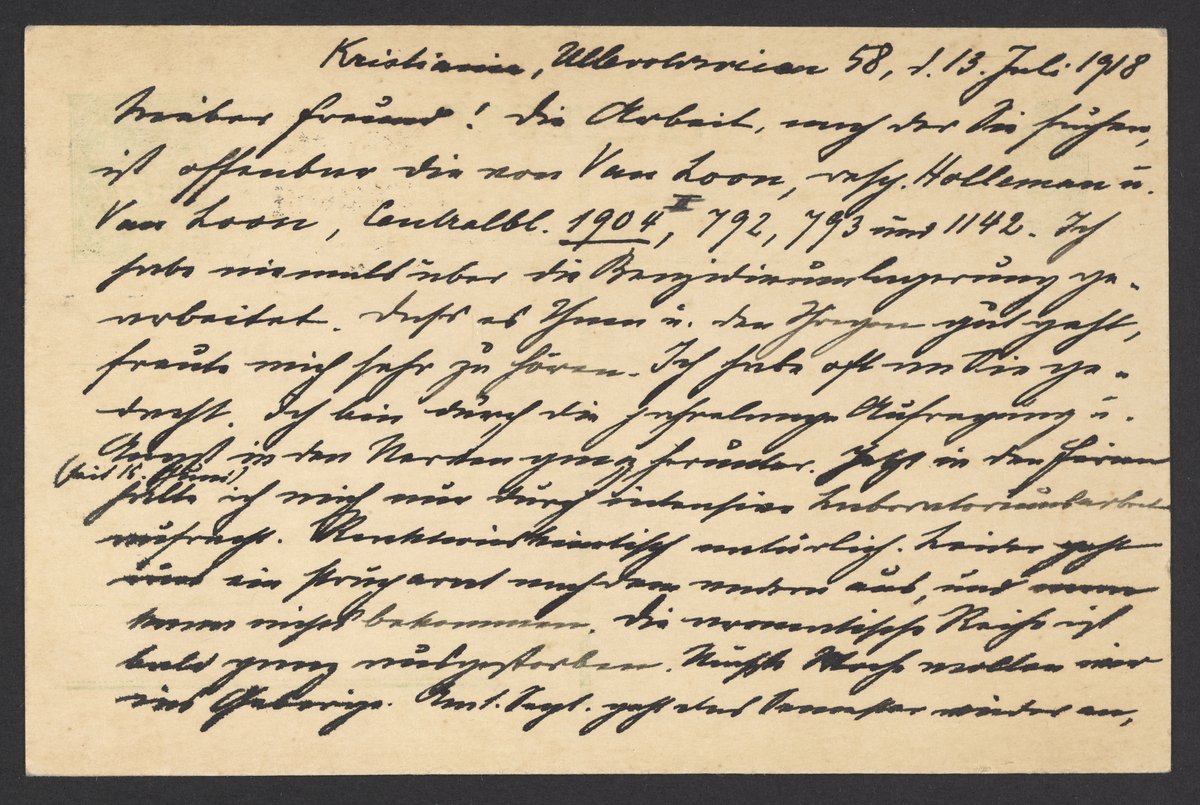 Kristiania, Ullevoldsveien 58, d. 13. Juli 1918
Lieber Freund! Die Arbeit, nach der Sie suchen,
ist offenbar die von Van Loon, resp. Holleman u.
Van Loon, Centralbl. 1904, II 792, 793 und 1142. Ich
habe niemals über die Benzidinumlagerung ge-
arbeitet. Dass es Ihnen u. den Ihrigen gut geht,
freute mich sehr zu hören. Ich habe oft an Sie ge-
dacht. Ich bin durch die jahrelange Aufregung u.
Angst in den Nerven ganz herunter. Jetzt in den Ferien
(seit 15. Juni)
halte ich mich nur durch intensive Laboratoriumsarbeit
aufrecht. Reaktionskinetisch natürlich. Leider geht
nun ein Präparat nach dem andern aus, und man
kann nichts bekommen. Die aromatische Reihe ist
bald ganz ausgestorben. Nächste Woche wollen wir
ins Gebirge. Am 1. Sept. geht das Semester wieder an,